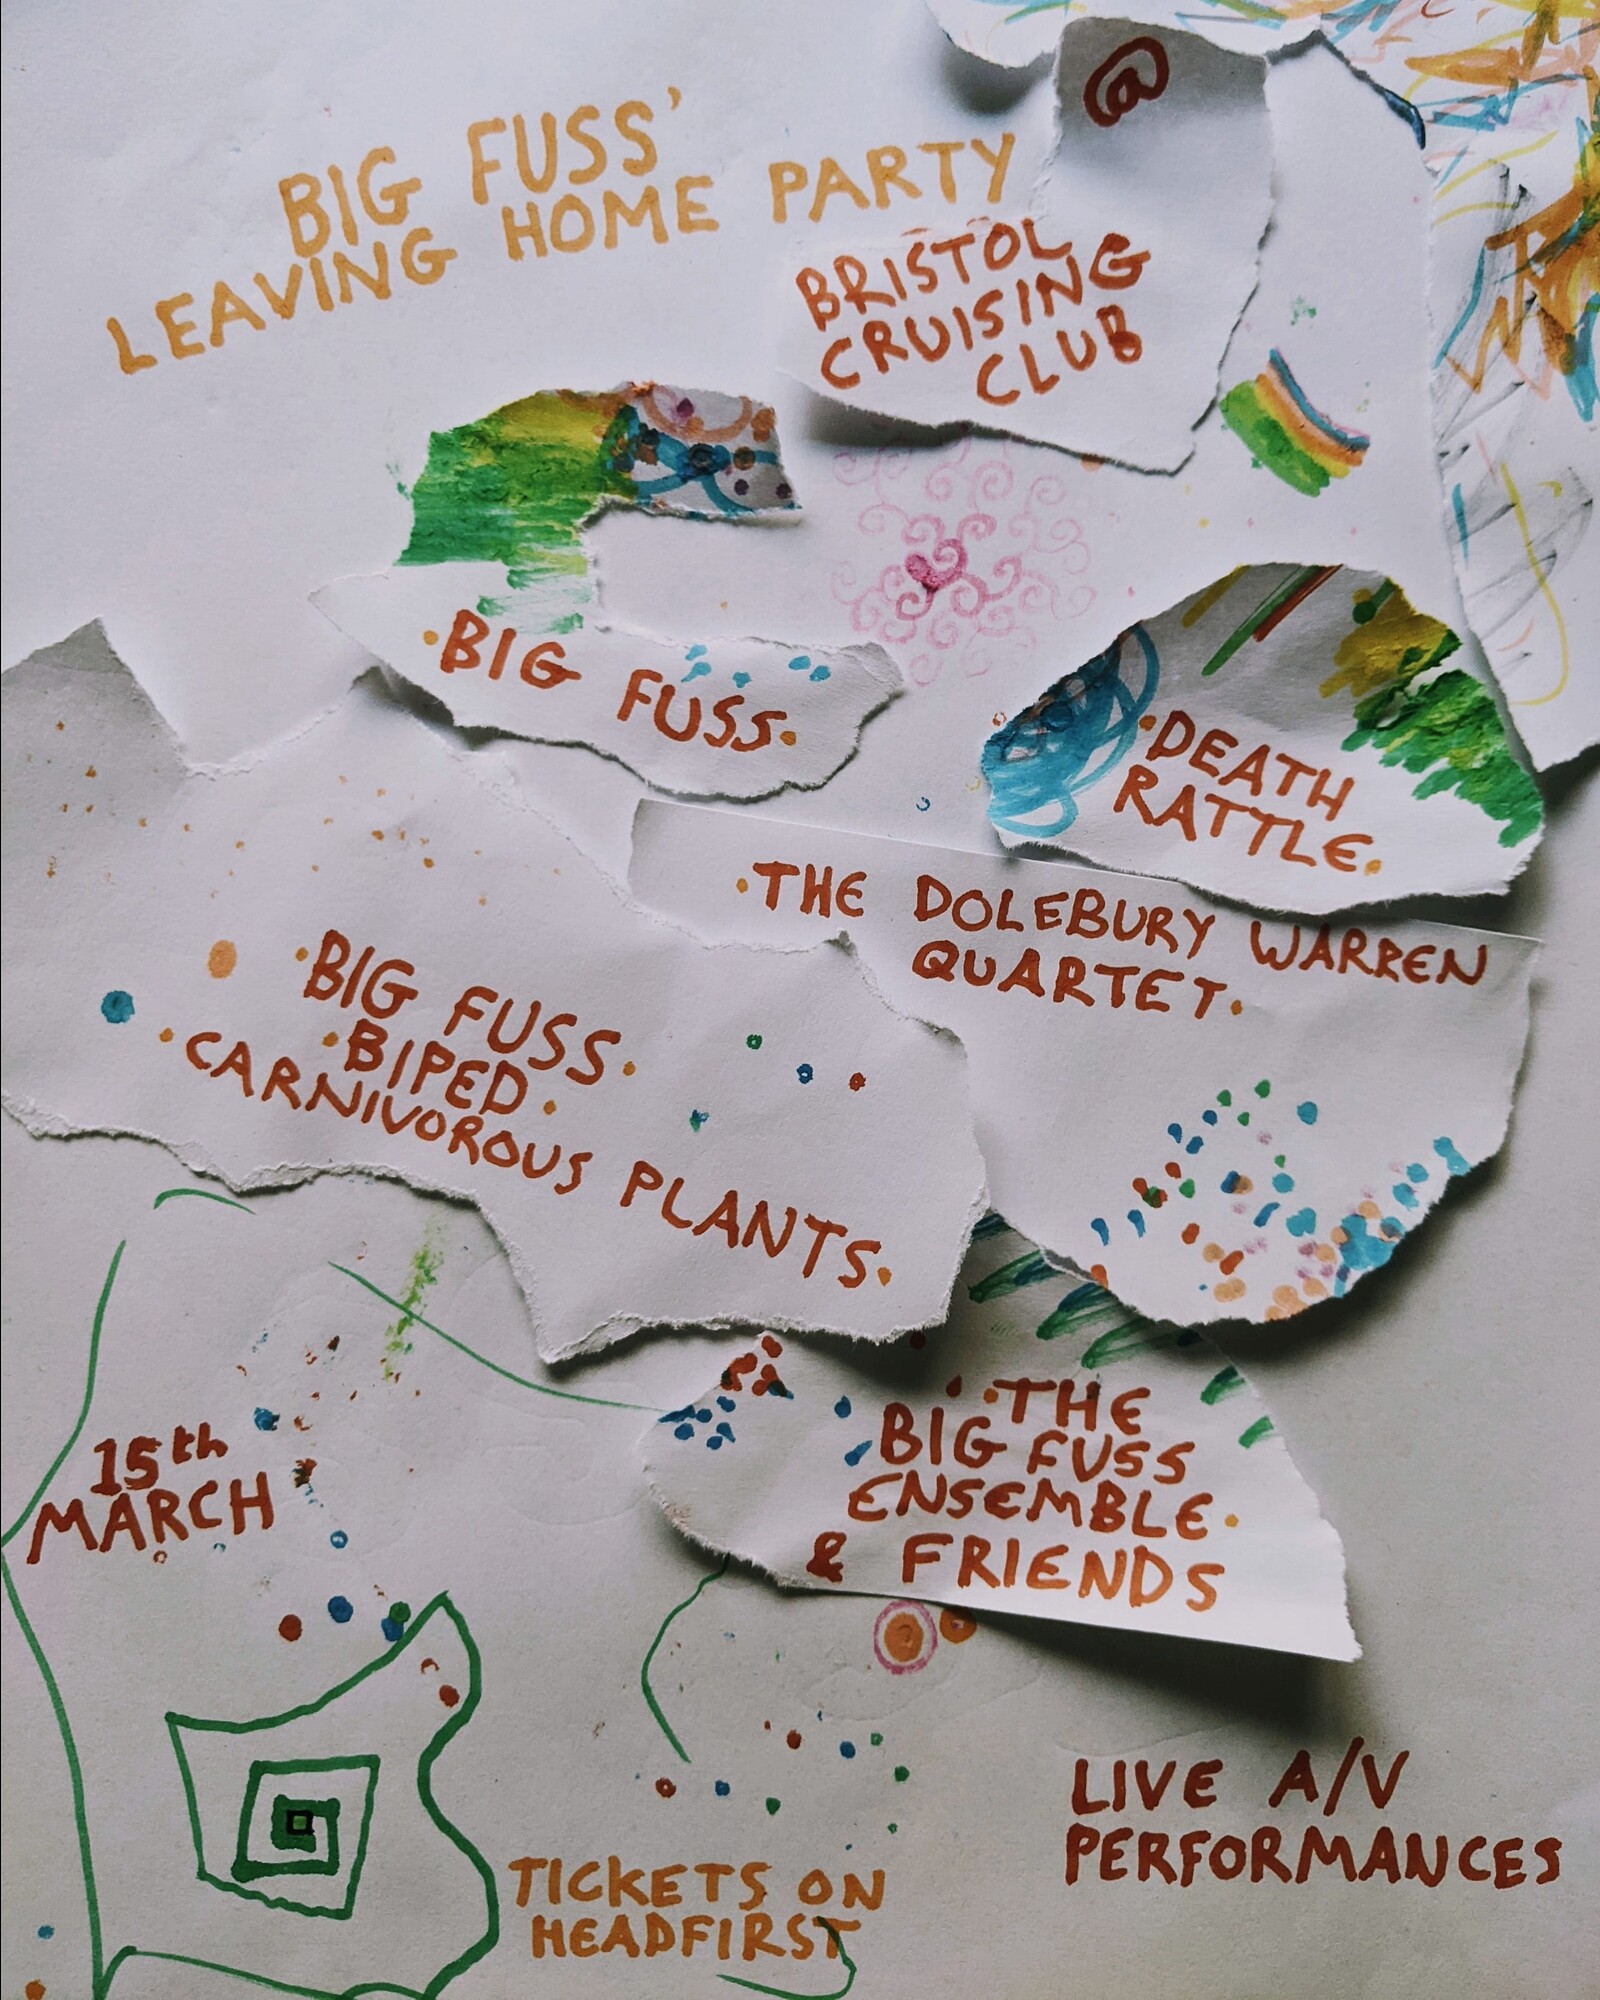 BIG FUSS'
LEAVING HOME PARTY
@
BRISTOL
CRUISING
CLUB
·BIG FUSS·
·DEATH
RATTLE·
·THE DOLEBURY WARREN
QUARTET·
·BIG FUSS·
·BIPED·
·CARNIVOROUS PLANTS·
·THE
BIG FUSS
ENSEMBLE·
& FRIENDS
15th
MARCH
LIVE A/V
PERFORMANCES
TICKETS ON
HEADFIRST